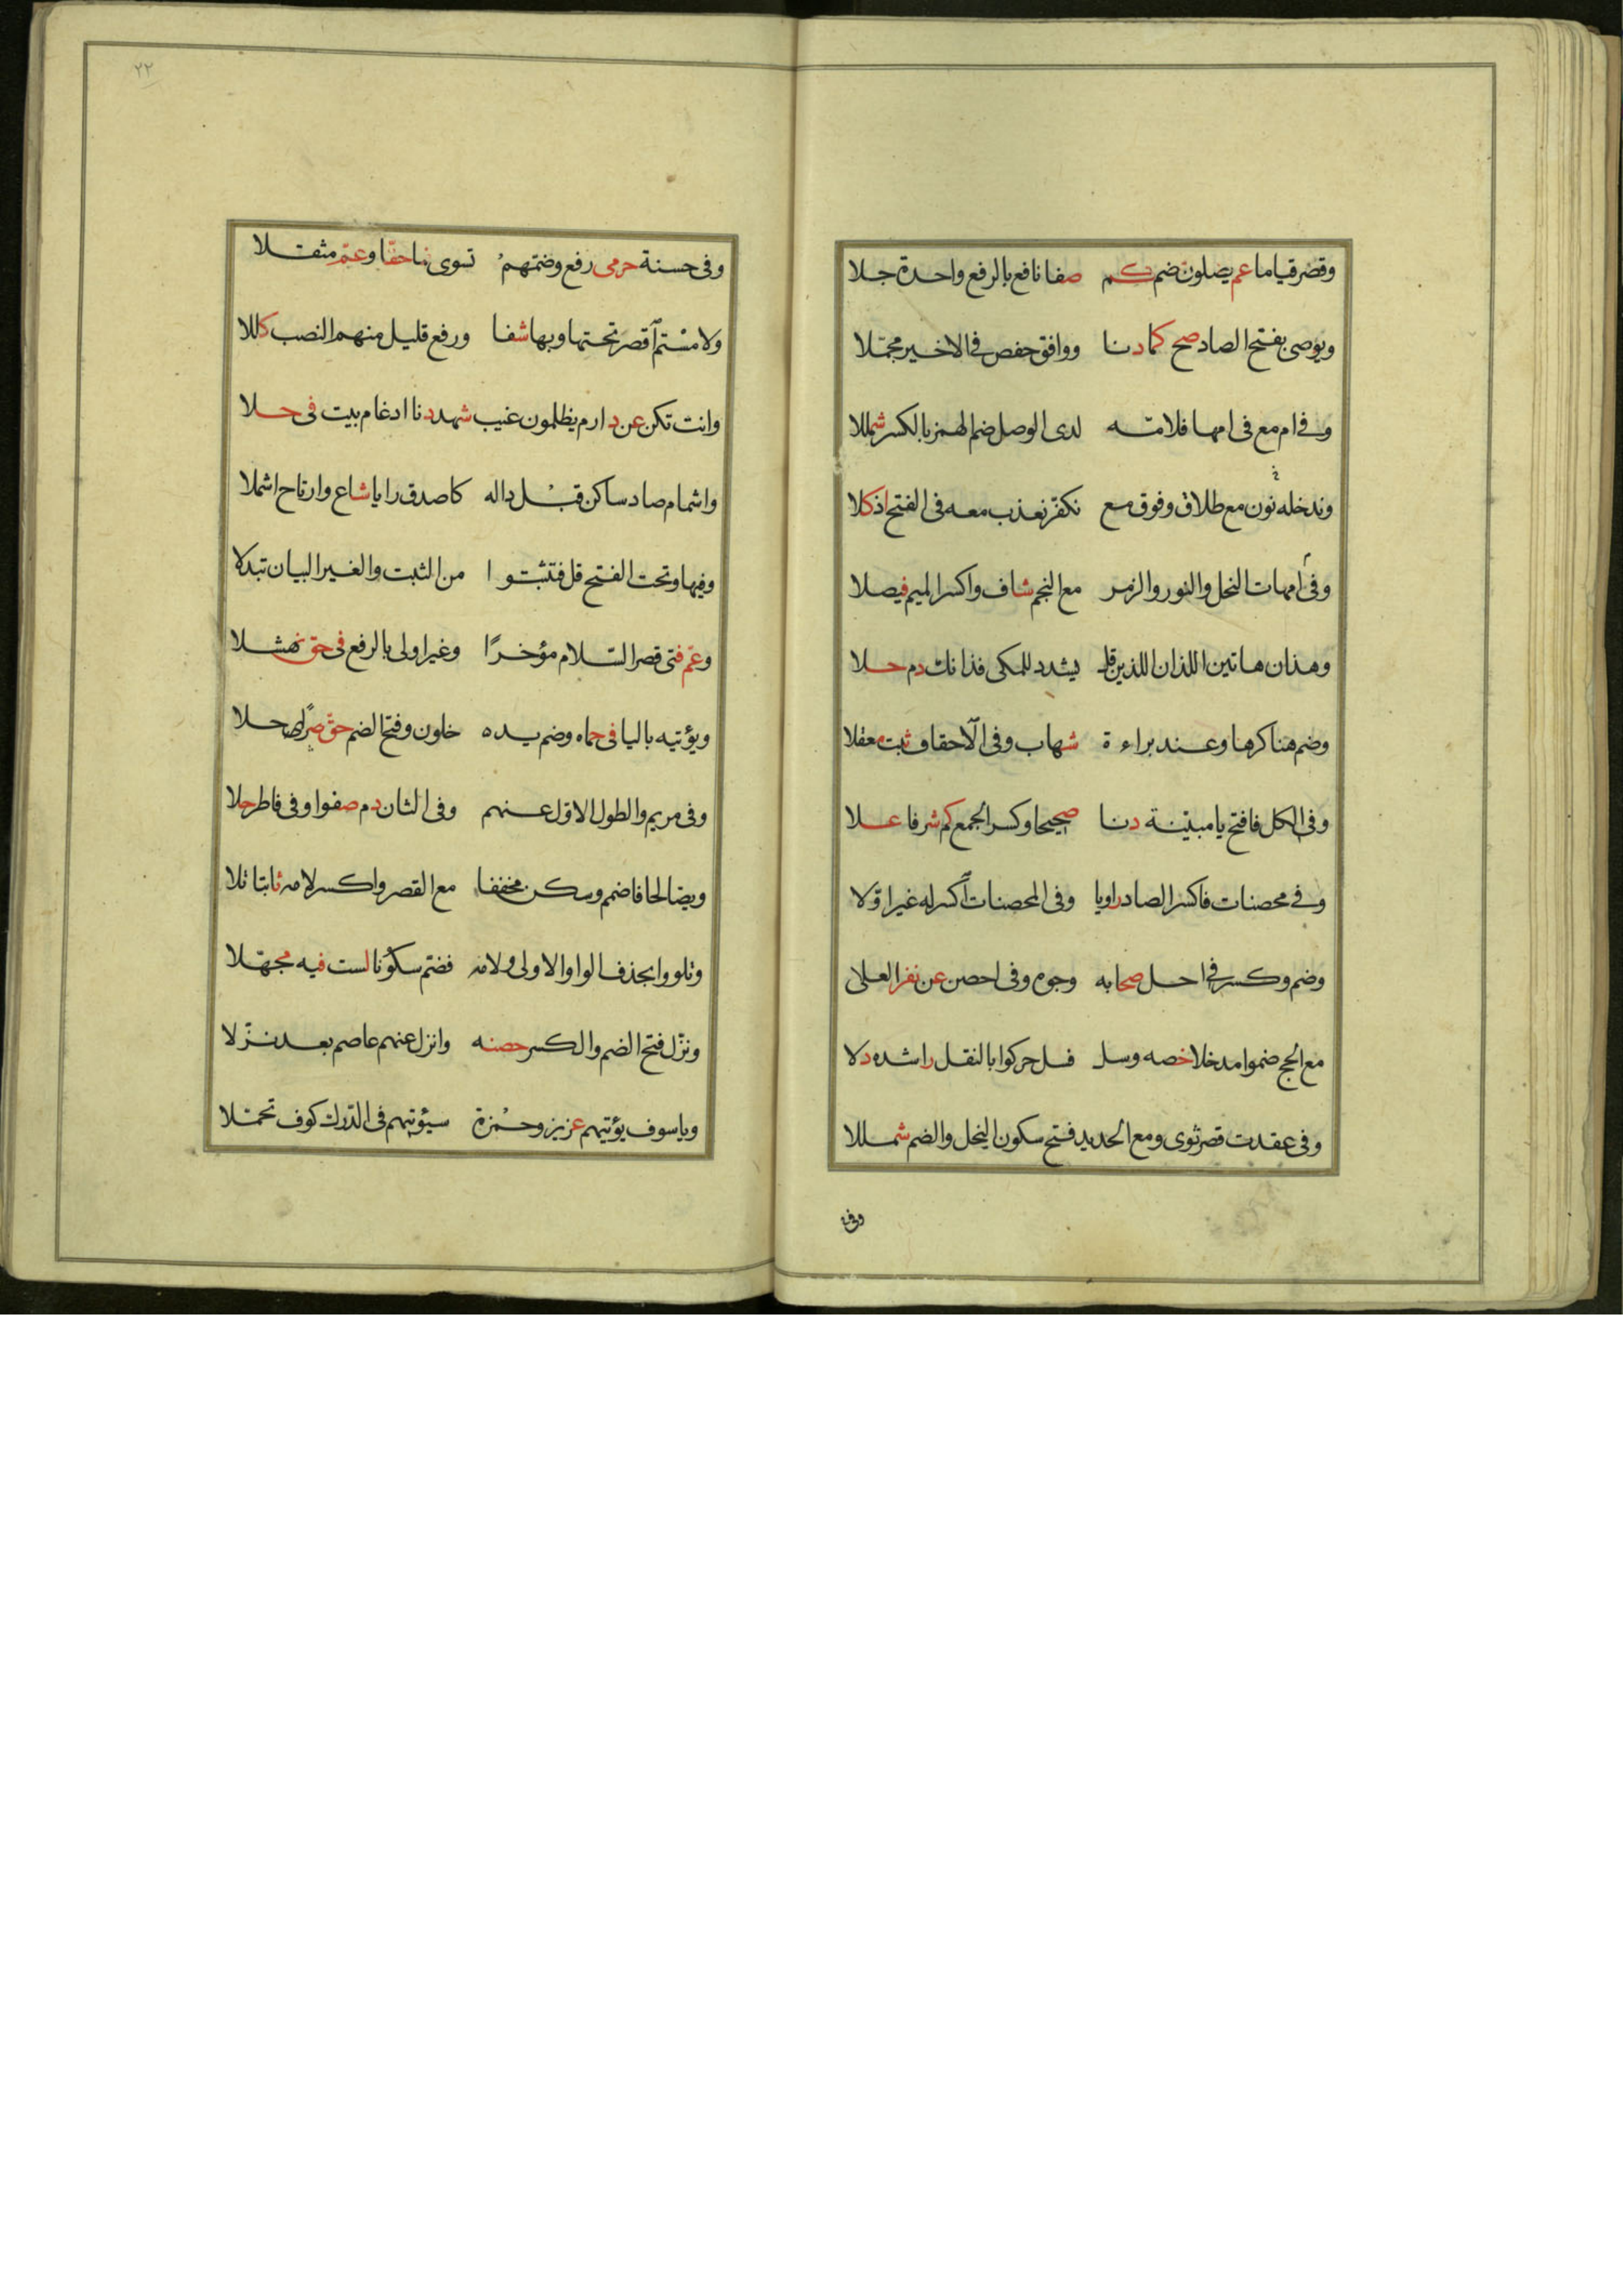 وقصر قياما عم يصلون ضم كم صفا نافع بالرفع واحدة جلا
ويوصى بفتح الصاد صح كما دنا ووافق حفص في الاخير مجملا
وفي ام مع في امها فلامه لدى الوصل ضم الهمز بالكسر شمللا
وندخله نون مع طلاق وفوق مع نكفر نعذب معه في الفتح اذ كلا
وفي امهات النحل والنور والزمر مع النجم شاف واكسر الميم فيصلا
وهذان هاتين اللذان اللذين قل يشدد للمكى فذانك دم حلا
وضم هنا كرها وعند براءة شهاب وفي الاحقاف ثبت معقلا
وفي الكل فافتح يا مبينة دنا صحيحا وكسر الجمع كم شرفا علا
وفي محصنات فاكسر الصاد راويا وفي المحصنات اكسر له غير اولا
وضم وكسر في احل صحابه وجوه وفي احصن عن نفر العلى
مع الحج ضموا مدخلا خصه وسل فسل حركوا بالنقل راشده دلا
وفي عقدت قصر ثوى ومع الحديد فتح سكون البخل والضم شمللا
وفي
٢٢
وفي حسنة حرمى رفع وضمهم تسوى نما حقا وعم مثقلا
ولامستم اقصر تحتها وبها شفا ورفع قليل منهم النصب كللا
وانت تكن عن دارم يظلمون غيب شهد دنا ادغام بيت في حلا
واشمام صاد ساكن قبل داله كاصدق رايا شاع وارتاح اشملا
وفيها وتحت الفتح قل فتثبتوا من الثبت والغير البيان تبدلا
وعم فتى قصر السلام مؤخرا وغير اولى بالرفع في حق نهشلا
ويؤتيه باليا في حماه وضم يدخلون وفتح الضم حق صرا حلا
وفي مريم والطول الاول عنهم وفي الثان دم صفوا وفي فاطر حلا
ويصالحا فاضمم وسكن مخففا مع القصر واكسر لامه ثابتا تلا
وتلووا بحذف الواو الاولى ولامه فضم سكونا لست فيه مجهلا
ونزل فتح الضم والكسر حصنه وانزل عنهم عاصم بعد نزلا
ويا سوف يؤتيهم عزيز وحمزة سيؤتيهم في الدرك كوف تحملا